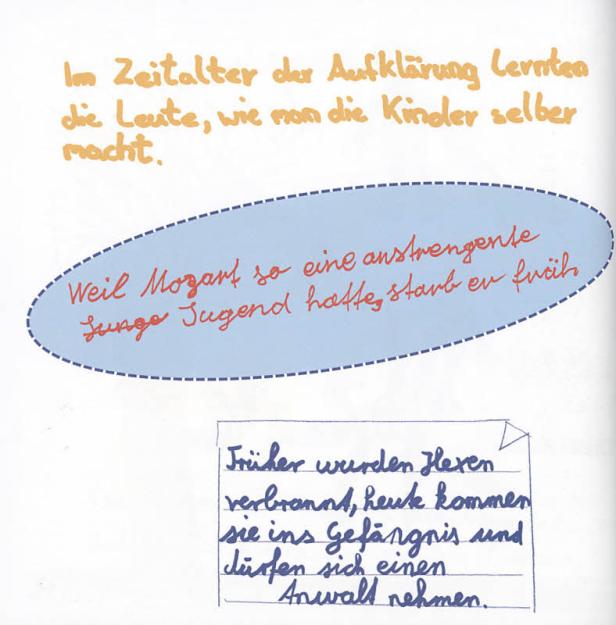 Im Zeitalter der Aufklärung lernten
die Leute, wie man die Kinder selber
macht.
Weil Mozart so eine anstrengente
Junge Jugend hatte, starb er früh
Früher wurden Hexen
verbrannt, heute kommen
sie ins Gefängnis und
dürfen sich einen
Anwalt nehmen.